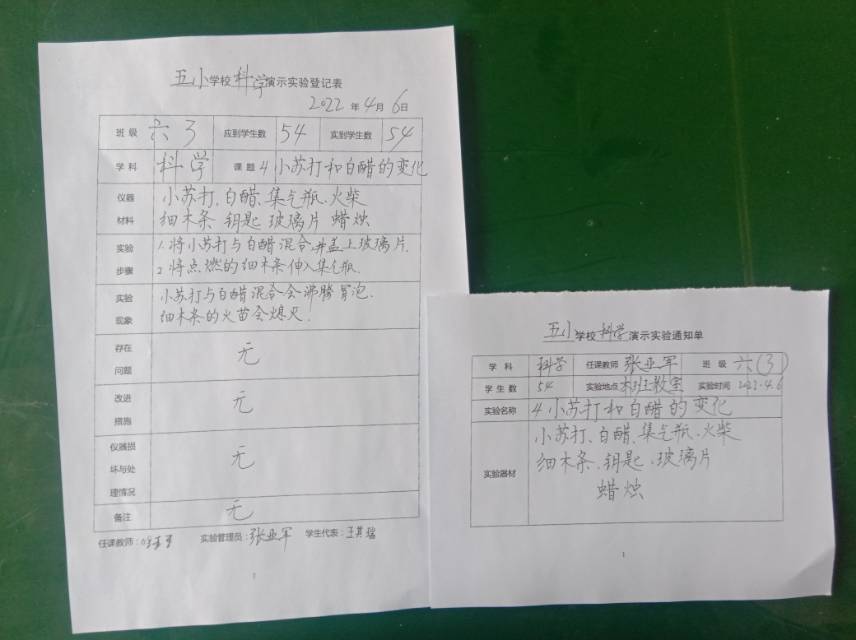 五小学校科学演示实验登记表
2022年4月6日
班级 六3 应到学生数 54 实到学生数 54
学科 科学 课题 4 小苏打和白醋的变化
仪器材料 小苏打、白醋、集气瓶、火柴
细木条 钥匙 玻璃片 蜡烛
实验步骤 1.将小苏打与白醋混合,并盖上玻璃片.
2.将点燃的细木条伸入集气瓶.
实验现象 小苏打与白醋混合会沸腾冒泡.
细木条的火苗会熄灭.
存在问题 无
改进措施 无
仪器损坏与处理情况 无
备注 无
任课教师: 实验管理员:张亚军 学生代表:王其瑞
1
五小学校科学演示实验通知单
学科 科学 任课教师 张亚军 班级 六(3)
学生数 54 实验地点 本班教室 实验时间 2022.4.6
实验名称 4 小苏打和白醋的变化
实验器材 小苏打、白醋、集气瓶、火柴
细木条、钥匙、玻璃片
蜡烛
1